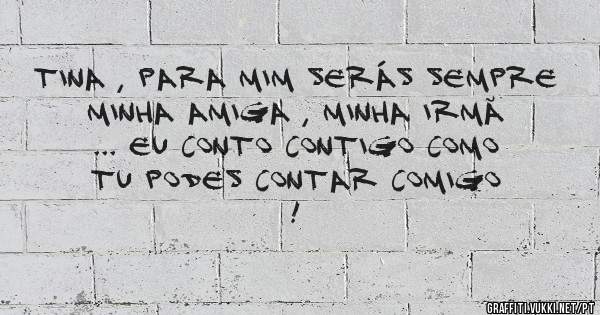 TINA , PARA MIM SERÁS SEMPRE
MINHA AMIGA , MINHA IRMÃ
... EU CONTO CONTIGO COMO
TU PODES CONTAR COMIGO
!
GRAFFITI.VUKKI.NET/PT